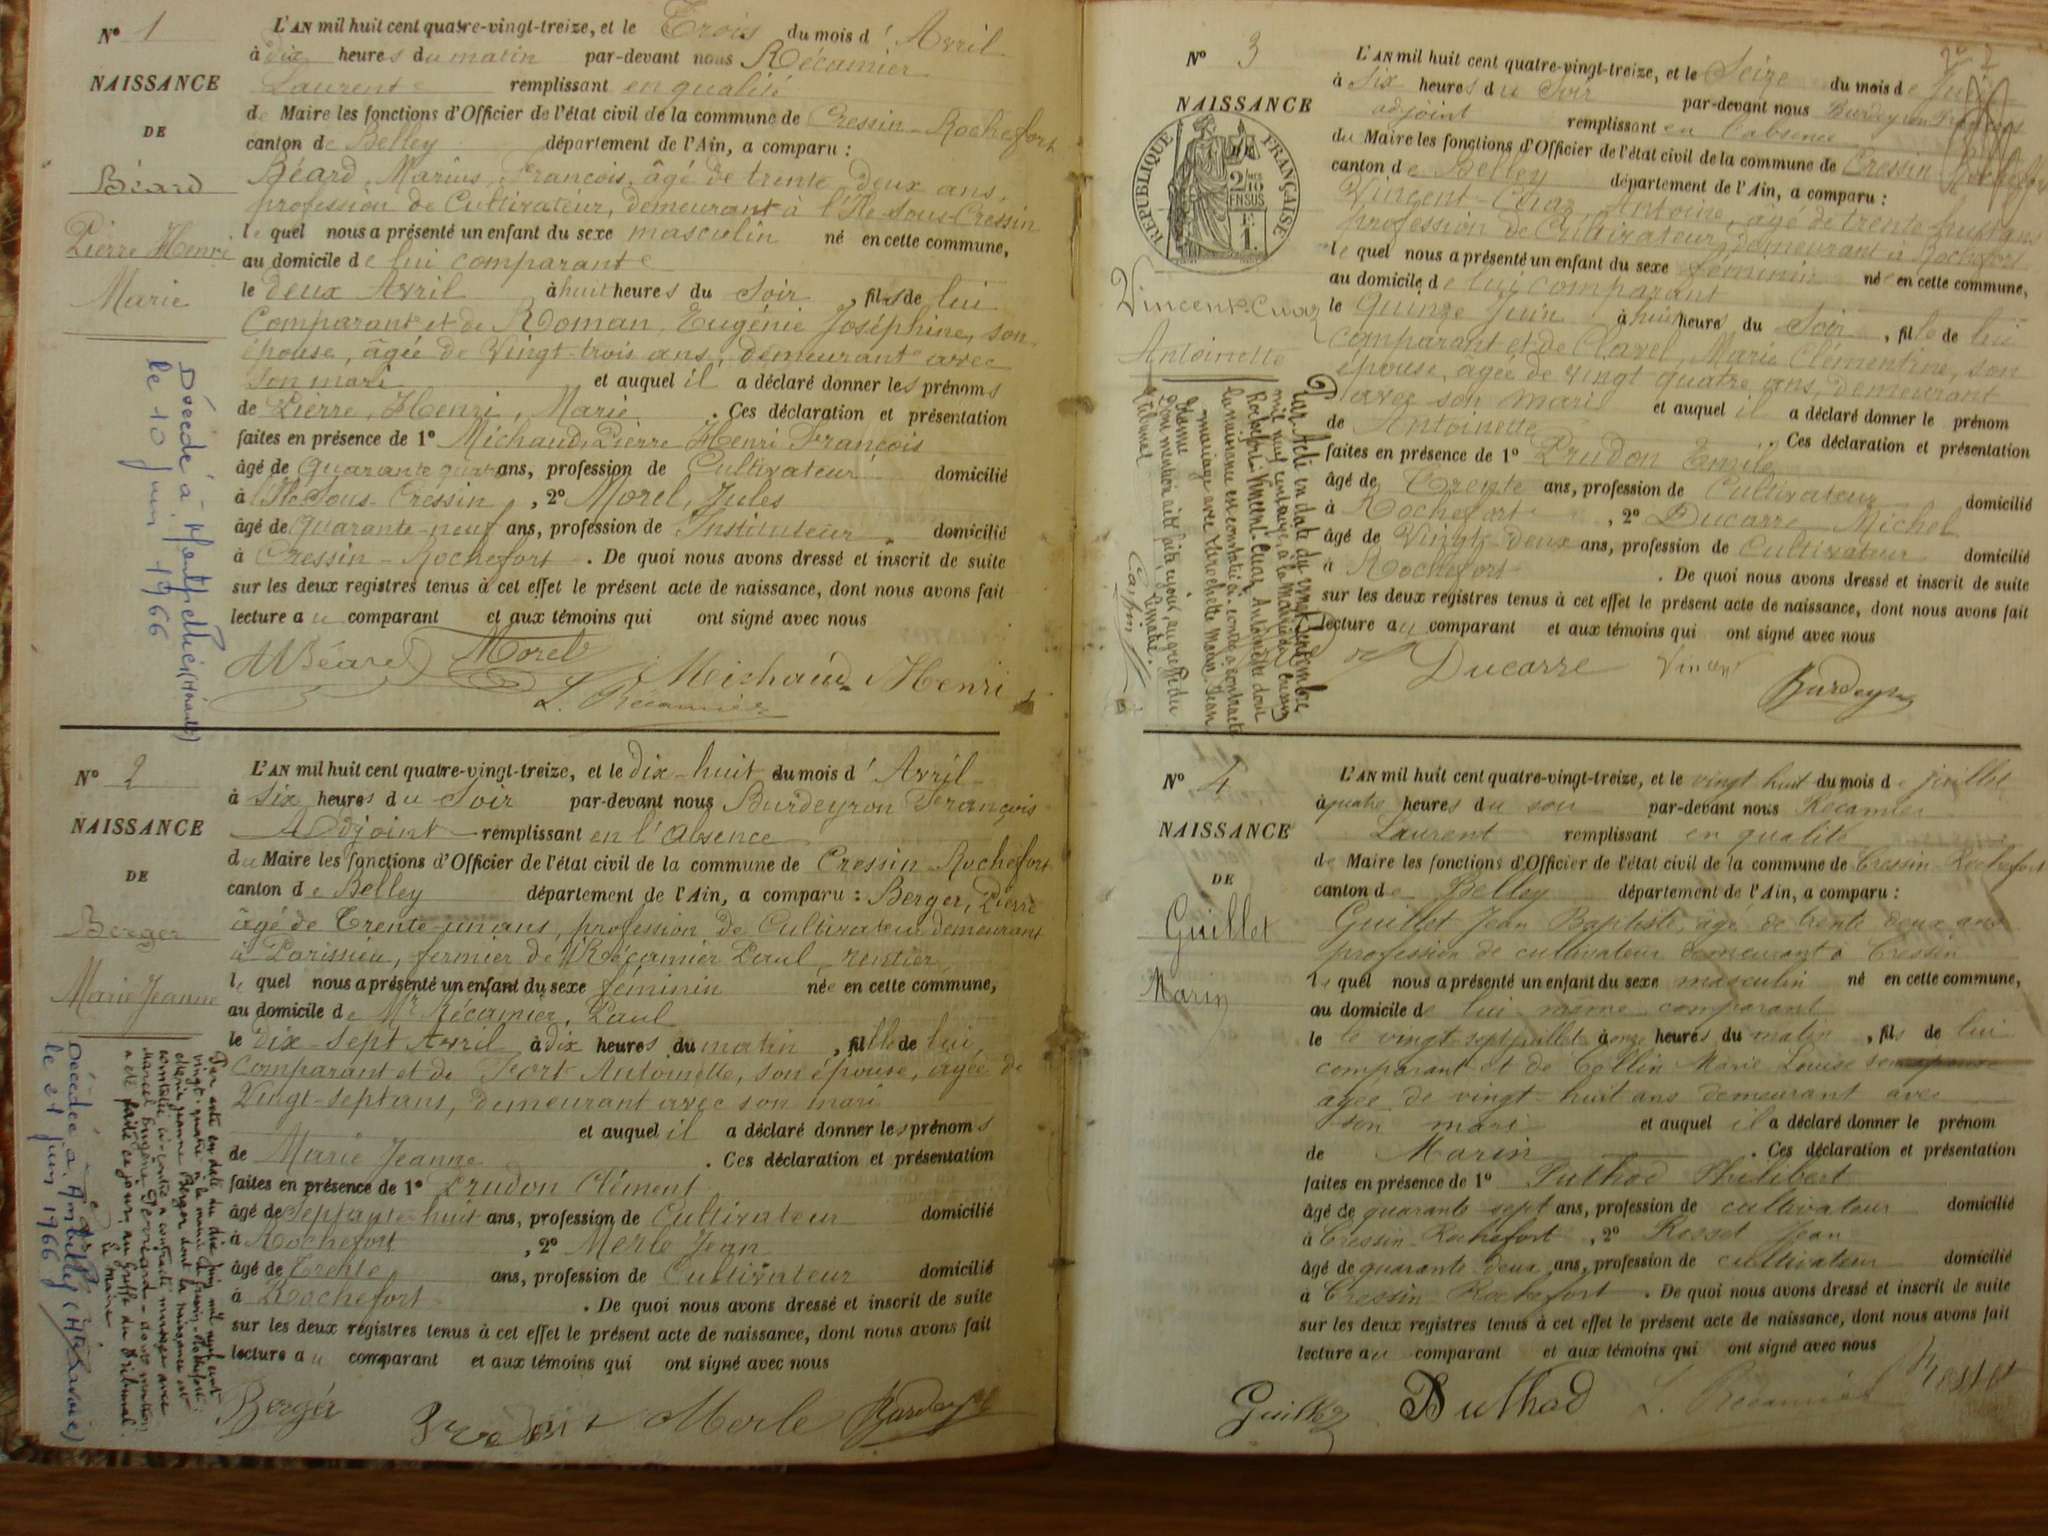 N° 1
NAISSANCE
DE
Béard
Pierre Henri
Marie
Décédé à Montpellier (Hérault)
le 10 juin 1966
L'AN mil huit cent quatre-vingt-treize, et le Trois du mois d'Avril
à dix heures du matin par-devant nous Récamier
Laurent remplissant en qualité
de Maire les fonctions d'Officier de l'état civil de la commune de Cressin-Rochefort
canton de Belley département de l'Ain, a comparu :
Béard, Marius, François, âgé de trente deux ans,
profession de Cultivateur, demeurant à l'Ile-Sous-Cressin
le quel nous a présenté un enfant du sexe masculin né en cette commune,
au domicile de lui comparant
le deux Avril à huit heures du Soir, fils de lui
Comparant et de Roman, Eugénie Joséphine, son
épouse, âgée de Vingt-trois ans, demeurant avec
son mari et auquel il a déclaré donner les prénoms
de Pierre, Henri, Marie. Ces déclaration et présentation
faites en présence de 1° Michaud, Pierre Henri François
âgé de quarante quatre ans, profession de Cultivateur domicilié
à l'Ile-Sous-Cressin, 2° Morel, Jules
âgé de quarante-neuf ans, profession de Instituteur domicilié
à Cressin-Rochefort. De quoi nous avons dressé et inscrit de suite
sur les deux registres tenus à cet effet le présent acte de naissance, dont nous avons fait
lecture au comparant et aux témoins qui ont signé avec nous
M Béard Morel Michaud Henri
L. Récamier
N° 2
NAISSANCE
DE
Berger
Marie Jeanne
Par acte en date du dix juin mil neuf cent
vingt-quatre à la mairie de Cressin-Rochefort
Marie Jeanne Berger dont la naissance est
constatée ci-contre a contracté mariage avec
Marcel Eugène dont mention
a été faite ce jour au Greffe du Tribunal.
Le Maire
Décédée à Ambilly (Hte Savoie)
le 21 juin 1966
L'AN mil huit cent quatre-vingt-treize, et le dix-huit du mois d'Avril
à Six heures du Soir par-devant nous Burdeyron François
Adjoint remplissant en l'absence
du Maire les fonctions d'Officier de l'état civil de la commune de Cressin-Rochefort
canton de Belley département de l'Ain, a comparu : Berger, Pierre
âgé de Trente-un ans, profession de Cultivateur demeurant
à Parissieu, fermier de Mr Récamier Paul, rentier
le quel nous a présenté un enfant du sexe féminin née en cette commune,
au domicile de Mr Récamier, Paul
le dix-sept Avril à dix heures du matin, fille de lui
Comparant et de Fort Antoinette, son épouse, âgée de
Vingt-sept ans, demeurant avec son mari
et auquel il a déclaré donner les prénoms
de Marie Jeanne. Ces déclaration et présentation
faites en présence de 1° Prudon Clément
âgé de Septante-huit ans, profession de Cultivateur domicilié
à Rochefort, 2° Merle Jean
âgé de Trente ans, profession de Cultivateur domicilié
à Rochefort. De quoi nous avons dressé et inscrit de suite
sur les deux registres tenus à cet effet le présent acte de naissance, dont nous avons fait
lecture au comparant et aux témoins qui ont signé avec nous
Berger Prudont Merle Burdeyron
N° 3
NAISSANCE
RÉPUBLIQUE FRANÇAISE
2/10 EN SUS
1F
Vincent-Cuaz
Antoinette
Par Acte en date du vingt Septembre
mil neuf cent onze, à la Mairie de Cressin
Rochefort, Vincent-Cuaz, Antoinette dont
la naissance est constatée ci-contre a contracté
mariage avec Larochette Marin-Jean
Dont mention a été faite ce jour, au greffe du
tribunal
Le Maire.
L'AN mil huit cent quatre-vingt-treize, et le Seize du mois de Juin
à Six heures du Soir par-devant nous Burdeyron François
adjoint remplissant en l'absence
du Maire les fonctions d'Officier de l'état civil de la commune de Cressin-Rochefort
canton de Belley département de l'Ain, a comparu :
Vincent-Cuaz, Antoine, âgé de trente-huit ans
profession de Cultivateur, demeurant à Rochefort
le quel nous a présenté un enfant du sexe féminin née en cette commune,
au domicile de lui comparant
le Quinze Juin à huit heures du Soir, fille de lui
comparant et de Clavel, Marie Clémentine, son
épouse, âgée de vingt quatre ans, demeurant
avec son mari et auquel il a déclaré donner le prénom
de Antoinette. Ces déclaration et présentation
faites en présence de 1° Prudon Emile
âgé de Trente ans, profession de Cultivateur domicilié
à Rochefort, 2° Ducarre Michel
âgé de Vingt-deux ans, profession de Cultivateur domicilié
à Rochefort. De quoi nous avons dressé et inscrit de suite
sur les deux registres tenus à cet effet le présent acte de naissance, dont nous avons fait
lecture au comparant et aux témoins qui ont signé avec nous
Ducarre Vincent
Burdeyron
N° 4
NAISSANCE
DE
Guillet
Marin
L'AN mil huit cent quatre-vingt-treize, et le vingt huit du mois de juillet
à quatre heures du soir par-devant nous Récamier
Laurent remplissant en qualité
de Maire les fonctions d'Officier de l'état civil de la commune de Cressin-Rochefort
canton de Belley département de l'Ain, a comparu :
Guillet Jean Baptiste, âgé de trente deux ans
profession de cultivateur demeurant à Cressin
le quel nous a présenté un enfant du sexe masculin né en cette commune,
au domicile de lui même comparant
le le vingt sept juillet à onze heures du matin, fils de lui
comparant et de Collin Marie Louise son épouse
âgée de vingt-huit ans demeurant avec
son mari et auquel il a déclaré donner le prénom
de Marin. Ces déclaration et présentation
faites en présence de 1° Puthod Philibert
âgé de quarante sept ans, profession de cultivateur domicilié
à Cressin-Rochefort, 2° Rosset Jean
âgé de quarante deux ans, profession de cultivateur domicilié
à Cressin-Rochefort. De quoi nous avons dressé et inscrit de suite
sur les deux registres tenus à cet effet le présent acte de naissance, dont nous avons fait
lecture au comparant et aux témoins qui ont signé avec nous
Guillet Puthod L. Récamier Rosset